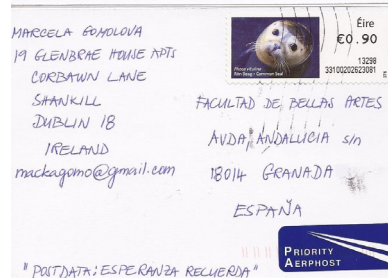 MARCELA GOMOLOVA
19 GLENBRAE HOUSE APTS
CORBAWN LANE
SHANKILL
DUBLIN 18
IRELAND
mackagomo@gmail.com
Éire
€0.90
13298
33100202623081
Phoca vitulina
Rón Beag - Common Seal
FACULTAD DE BELLAS ARTES
AVDA, ANDALUCIA s/n
18014 GRANADA
ESPAÑA
PRIORITY
AERPHOST
"POSTDATA: ESPERANZA RECUERDA"